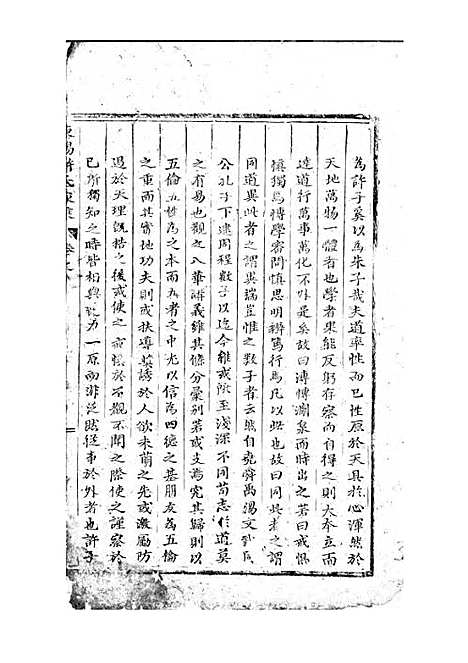 為許子奚以為朱子哉夫道率性而已性原於天具於心渾然於
天地萬物一體者也學者果能反躬存察而自得之則大本立而
達道行萬事萬化不外是矣故曰溥博淵泉而時出之若曰戒懼
慎獨為博學審問慎思明辨篤行焉凡以此也故曰同同此者之謂
同道異此者之謂異端豈惟之數子者云然自堯舜禹湯文武周
公孔子下逮周程數子以迄今雖或險至淺深不同苟志於道莫
之有易也可之八華講義雖其條分彙別若或支焉究其歸則以
五倫五性為之本而五者之中尤以信為四德之基朋友為五倫
之重而其實地功夫則或扶導奬誘於人欲未萌之先或激厲防
遏於天理既牿之後或使之戒懼於不覩不聞之際使之謹察於
已所獨知之時皆相與致力一原而非泛然從事於外者也許子
東陽許氏家乘